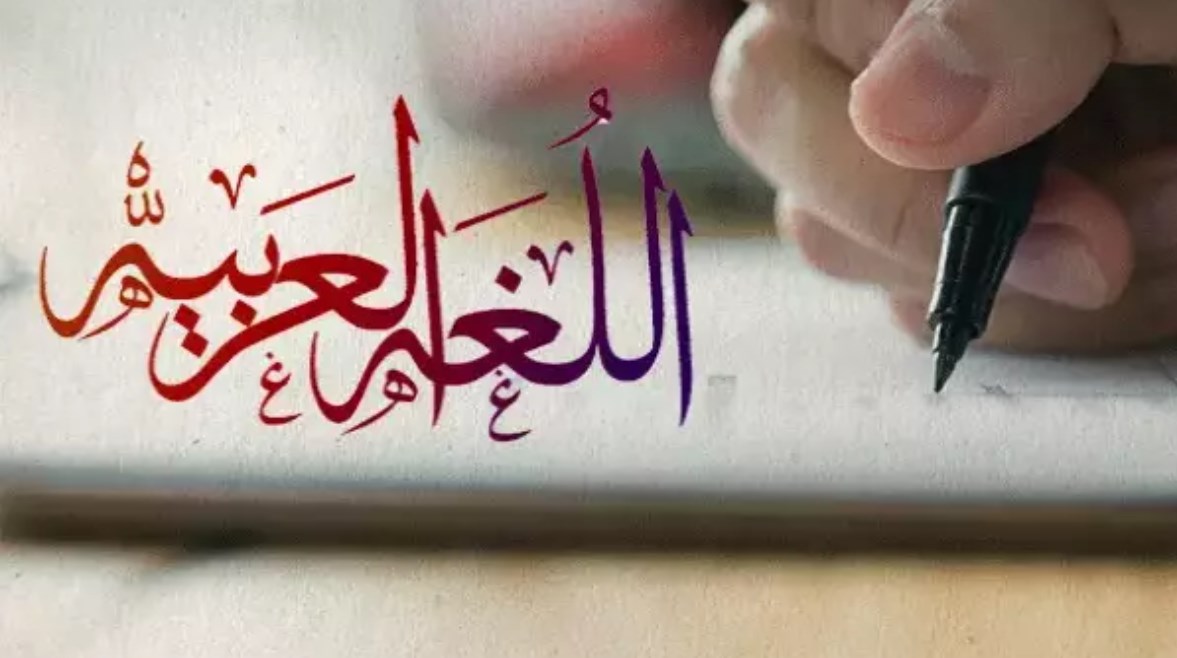 اللُغة العَربيَّة